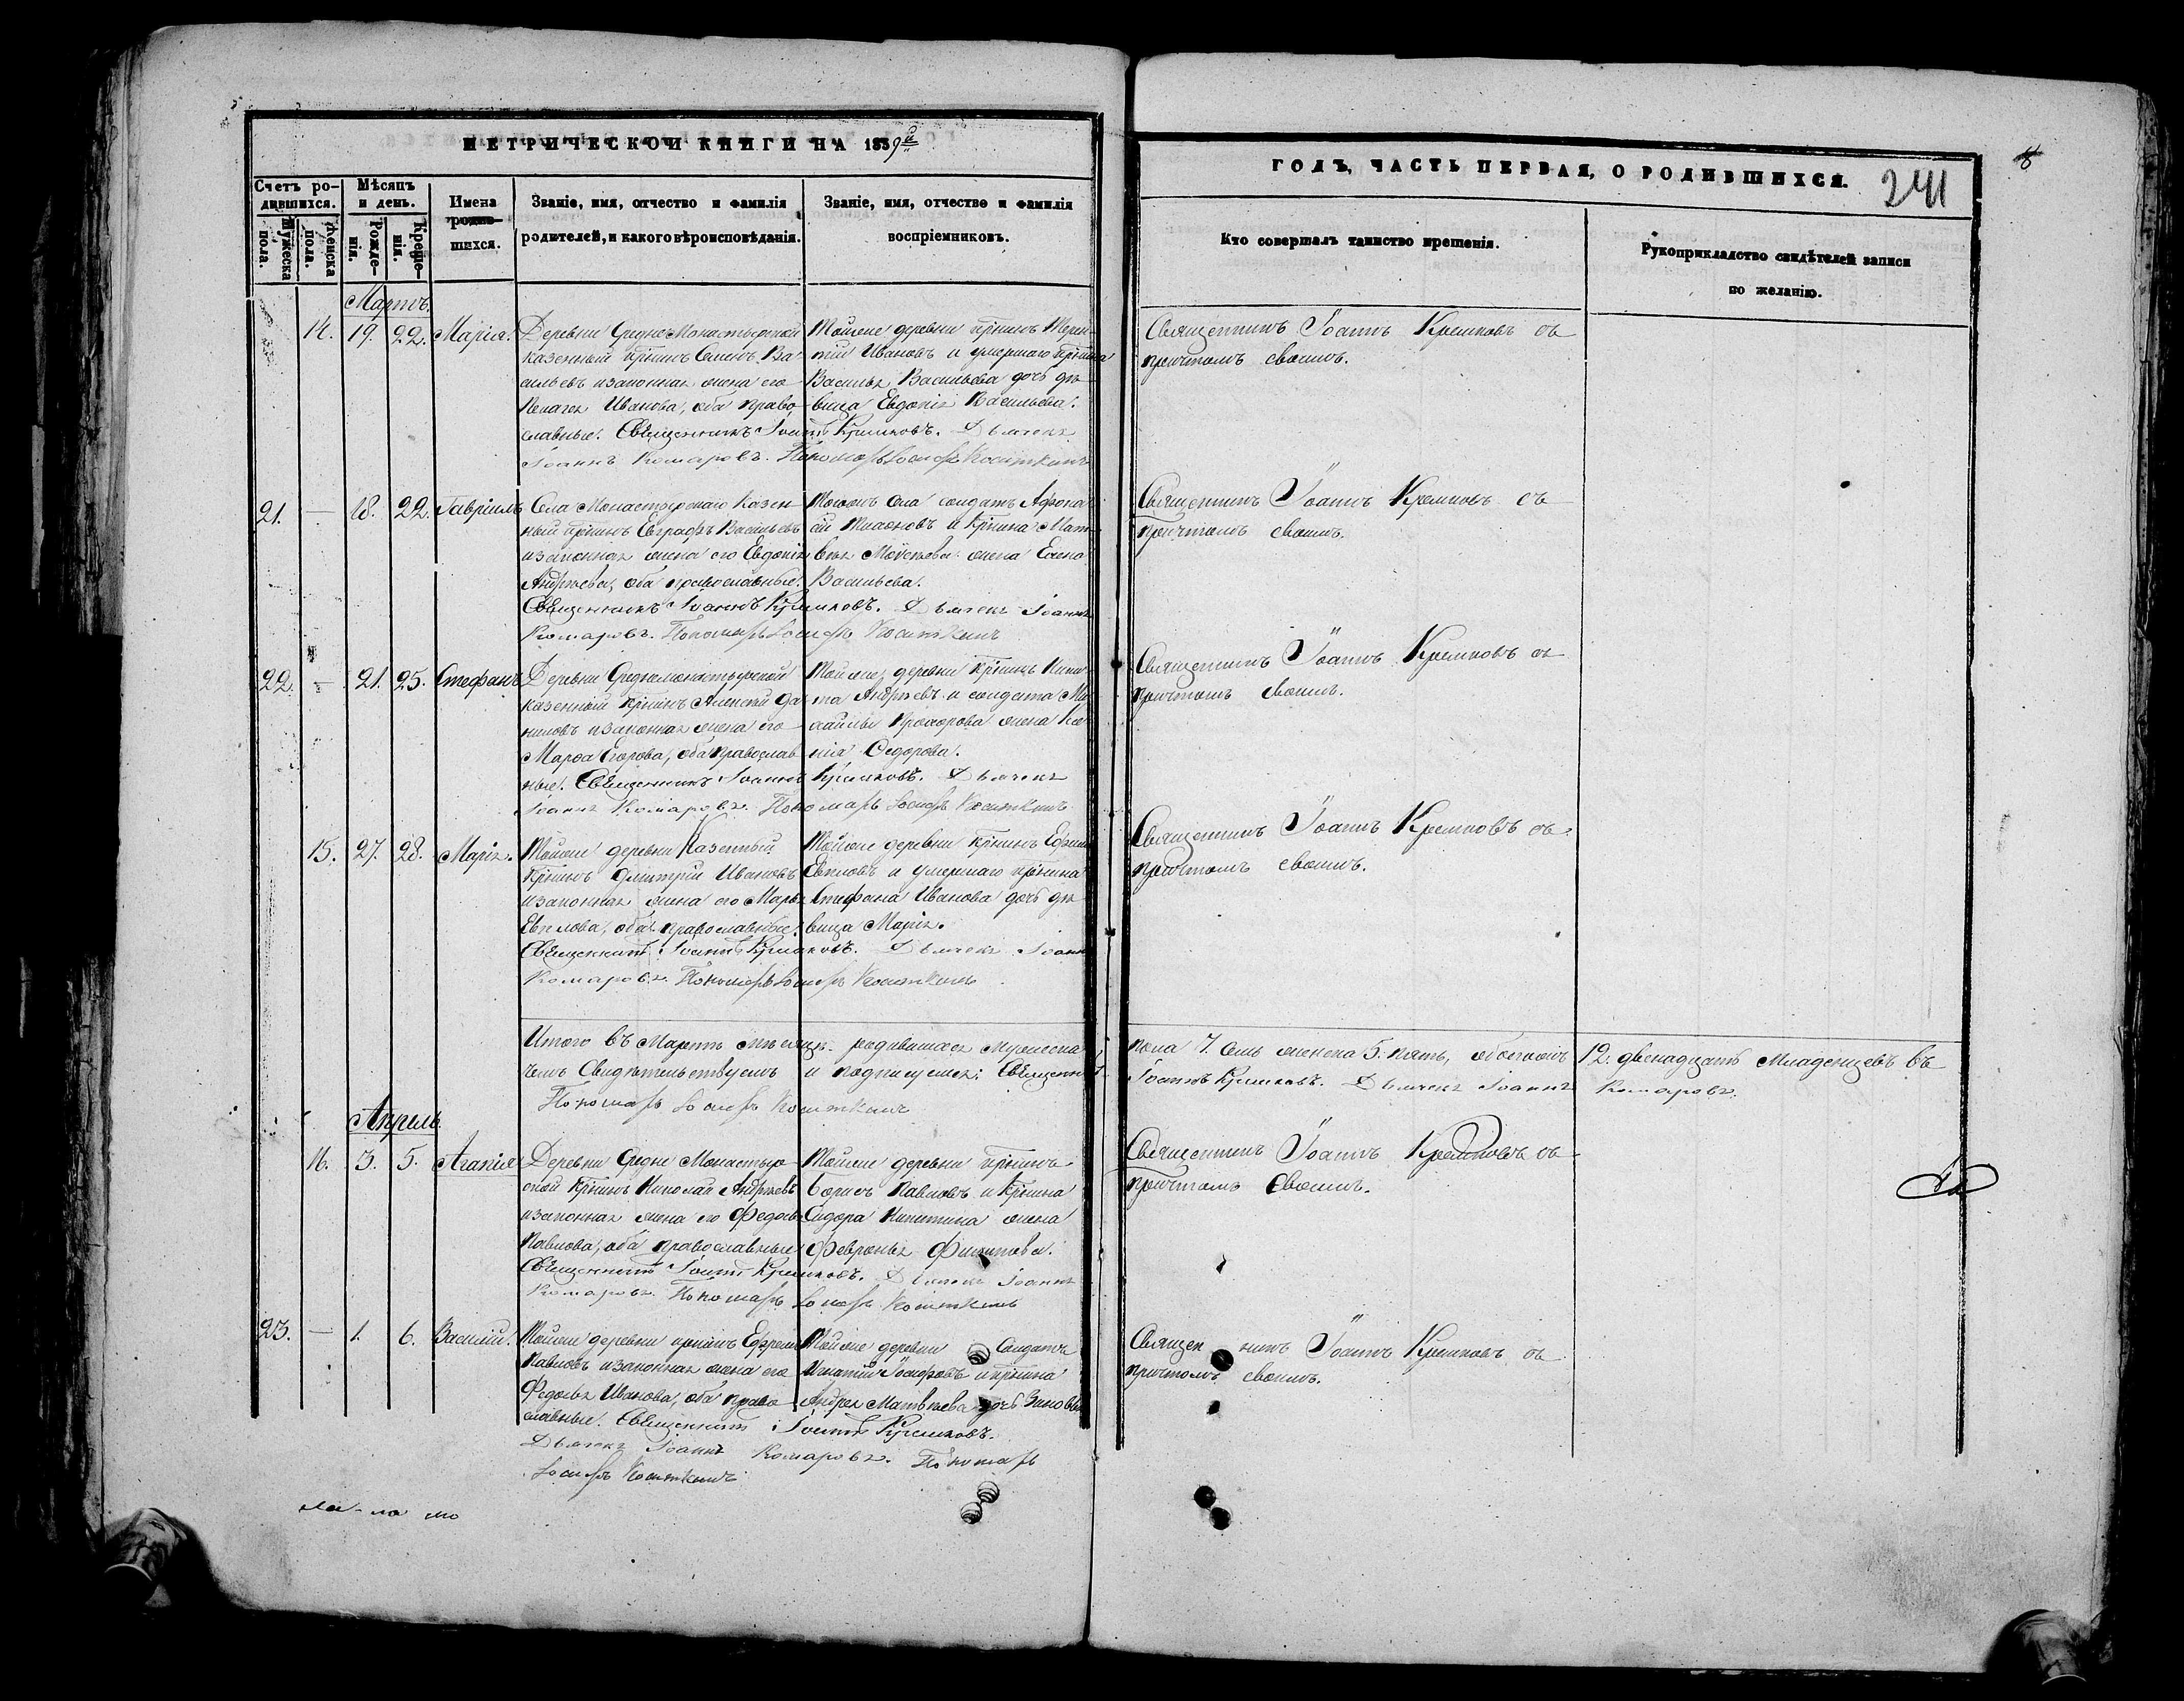 МЕТРИЧЕСКОЙ КНИГИ НА 1859й
ГОДЪ, ЧАСТЬ ПЕРВАЯ, О РОДИВШИХСЯ.
241
8
Счетъ ро-
дившихся.
Мѣсяцъ
и день.
Имена
родив-
шихся.
Званіе, имя, отчество и фамилія
родителей, и какого вѣроисповѣданія.
Званіе, имя, отчество и фамилія
воспріемниковъ.
Мужеска
пола.
Женска
пола.
Рожде-
нія.
Креще-
нія.
Кто совершалъ таинство крещенія.
Рукоприкладство свидѣтелей записи
по желанію.
Мартъ
14. 19. 22. Марія.
Деревни Средне Монастырской
казенный крнинъ Симъ Ва
сильевъ и законная жена его
Пелагея Иванова, оба право-
славные. Священникъ Іоаннъ Кремковъ. Дьячекъ
Іоаннъ Комаровъ. Пономарь Іосифъ
Тойже деревни крнинъ Терен-
тій Ивановъ и умершаго крнина
Василья Васильева дочь дѣ
вица Евдокія Васильева.
Священникъ Іоаннъ Кремковъ съ
причтомъ своимъ.
21. — 18. 22. Гавріилъ
Села Монастырскаго казен
ный крнинъ Евграфъ Васильевъ
и законная жена его Евдокія
Андреева, оба православные.
Священникъ Іоаннъ Кремковъ. Дьячекъ Іоаннъ
Комаровъ. Пономарь Іосифъ
Тогожъ села солдатъ Афонас
ій и крнина Мат
вея Моисеева жена Елена
Васильева.
Священникъ Іоаннъ Кремковъ съ
причтомъ своимъ.
22. — 21. 25. Стефанъ
Деревни Средмонастырской
казенный крнинъ Алексѣй Да
ниловъ и законная жена его
Марфа Егорова, оба православ
ные. Священникъ Іоаннъ Кремковъ. Дьячекъ
Іоаннъ Комаровъ. Пономарь Іосифъ
Тойже деревни крнинъ Ники
та Андреевъ и солдата Ми
хайлы Прохорова жена Ксе
нія Федорова.
Священникъ Іоаннъ Кремковъ съ
причтомъ своимъ.
15. 27. 28. Марія.
Тойже деревни казенный
крнинъ Димитрій Ивановъ
и законная жена его Марья
оба православные.
Священникъ Іоаннъ Кремковъ. Дьячекъ Іоаннъ
Комаровъ. Пономарь Іосифъ
Тойже деревни крнинъ
и умершаго крнина
Стефана Иванова дочь дѣ
вица Марія.
Священникъ Іоаннъ Кремковъ съ
причтомъ своимъ.
Итого въ Мартѣ мѣсяцѣ родившихся мужеска пола 7. семь женска 5. пять, обоего 12. двенадцать младенцевъ въ
чемъ свидѣтельствуемъ и подписуемся: Священникъ Іоаннъ Кремковъ. Дьячекъ Іоаннъ Комаровъ.
Пономарь Іосифъ
Апрель
16. 3. 5. Агапія
Деревни Средне Монастыр-
ской крнинъ Николай Андреевъ
и законная жена его Федосья
Павлова, оба православные.
Священникъ Іоаннъ Кремковъ. Дьячекъ Іоаннъ
Комаровъ. Пономарь Іосифъ
Тойже деревни крнинъ
Борисъ Павловъ и крнина
Сидора Никитина жена
Февронья Филипова.
Священникъ Іоаннъ Кремковъ съ
причтомъ своимъ.
23. — 1. 6. Василій.
Тойже деревни крнинъ Ефремъ
Павловъ и законная жена его
Федосья Иванова, оба право-
славные. Священникъ Іоаннъ Кремковъ.
Дьячекъ Іоаннъ Комаровъ. Пономарь
Іосифъ
Тойже деревни солдатъ
Игнатій Іосифовъ и крнина
Андрея Матвѣева дочь Зиновья
Священникъ Іоаннъ Кремковъ съ
причтомъ своимъ.